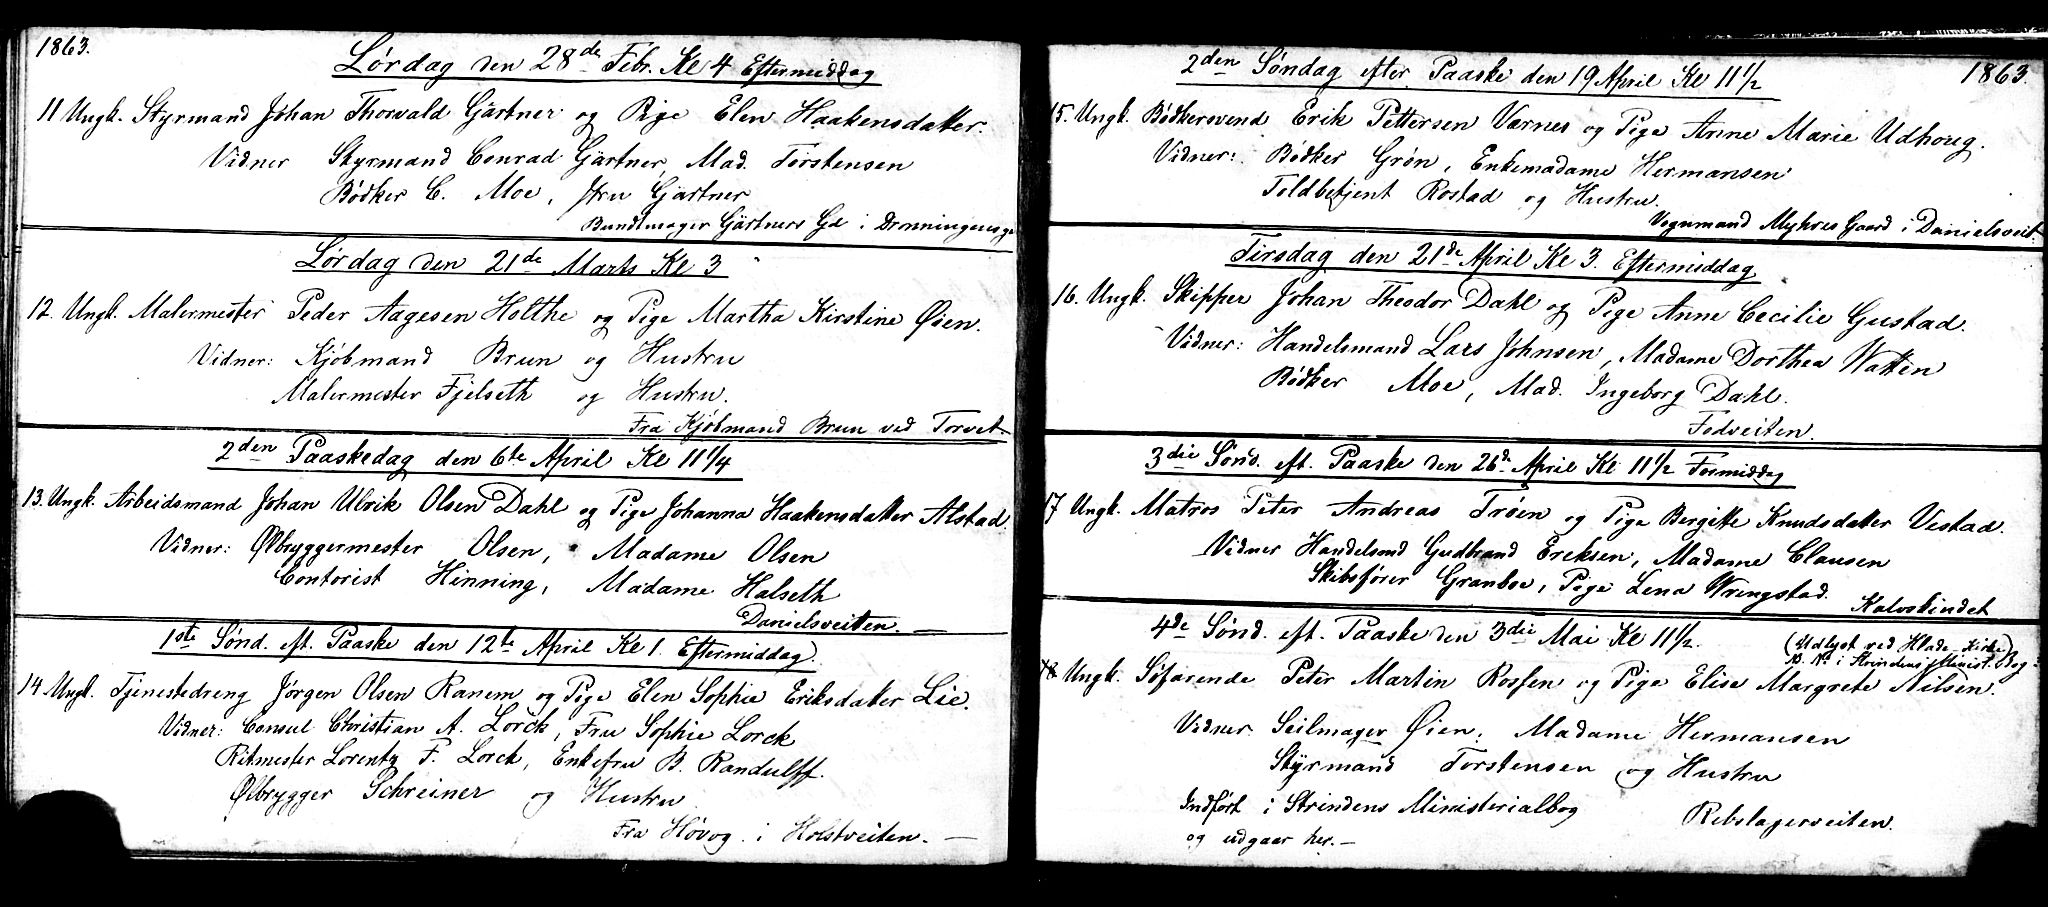 1863.
Lørdag den 28de Febr. Kl 4 Eftermiddag
11 Ungk. Styrmand Johan Thorvald Gärtner og Pige Elen Haakensdatter.
Vidner Styrmand Conrad Gärtner, Mad. Torstensen
Bødker C. Moe, Fru Gjärtner
Bundtmager Gärtners Gd i Dronningensg
Lørdag den 21de Marts Kl 3
12. Ungk. Malermester Peder Aagesen Holthe og Pige Martha Kirstine Øien.
Vidner: Kjøbmand Brun og Hustru
Malermester Fjelseth og Hustru.
Fra Kjøbmand Brun ved Torvet.
2den Paaskedag den 6te April Kl 11 1/4
13. Ungk. Arbeidsmand Johan Ulrik Olsen Dahl og Pige Johanna Haakensdatter Alstad.
Vidner: Ølbryggermester Olsen, Madame Olsen
Contorist Hinning, Madame Halseth
Danielsveiten.
1ste Sønd. eft. Paaske den 12te April Kl 1. Eftermiddag.
14. Ungk. Tjenestedreng Jørgen Olsen Ranem og Pige Elen Sophie Eriksdatter Lie.
Vidner: Consul Christian A. Lorck, Fru Sophie Lorck
Ritmester Lorentz F. Lorck, Enkefru B. Randulff.
Ølbrygger Schreiner og Hustru
Fra Høvog i Holstveiten.
1863.
2den Søndag efter Paaske den 19 April Kl 11 1/2
15. Ungk. Bødkersvend Erik Pettersen Varnes og Pige Anne Marie Udhoug.
Vidner: Bødker Grøn, Enkemadame Hermansen
Toldbetjent Rostad og Hustru.
Vognmand Myhres Gaard i Danielsveit.
Tirsdag den 21de April Kl 3. Eftermiddag
16. Ungk. Skipper Johan Theodor Dahl og Pige Anne Cecilie Gustad.
Vidner: Handelsmand Lars Johnsen, Madame Dorthea Watten
Bødker Moe, Mad. Ingeborg Dahl.
Fedveiten.
3die Sønd. eft. Paaske den 26de April Kl 11 1/2 Formiddag
17 Ungk. Matros Peter Andreas Trøen og Pige Bergitte Knudsdatter Vestad.
Vidner Handelsmd Gudbrand Ereksen, Madame Clausen
Skibsfører Granboe, Pige Lena Wringstad.
Kalvskindet
4de Sønd. eft. Paaske den 3die Mai Kl 11 1/2.
(Udlyst ved Hlade Kirke
N. No i Strindens Minist. Bog
18 Ungk. Søfarende Peter Martin Rosfen og Pige Elise Margrete Nilsen.
Vidner Seilmager Øien, Madame Hermansen
Styrmand Torstensen og Hustru
Indført i Strindens Ministerialbog
Rebslagerveiten.
og udgaar her.